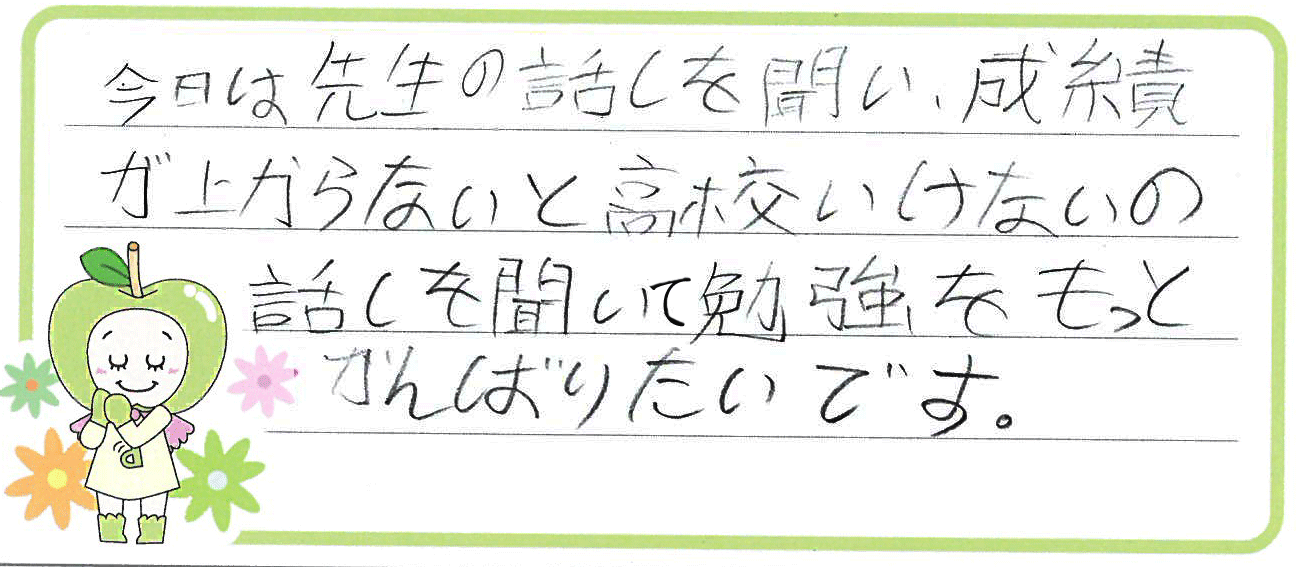 今日は先生の話しを聞い、成績
が上がらないと高校いけないの
話しを聞いて勉強をもっと
がんばりたいです。